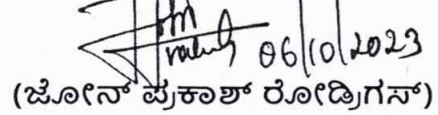 06/10/2023
(ಜೋನ್ ಪ್ರಕಾಶ್ ರೋಡ್ರಿಗಸ್)